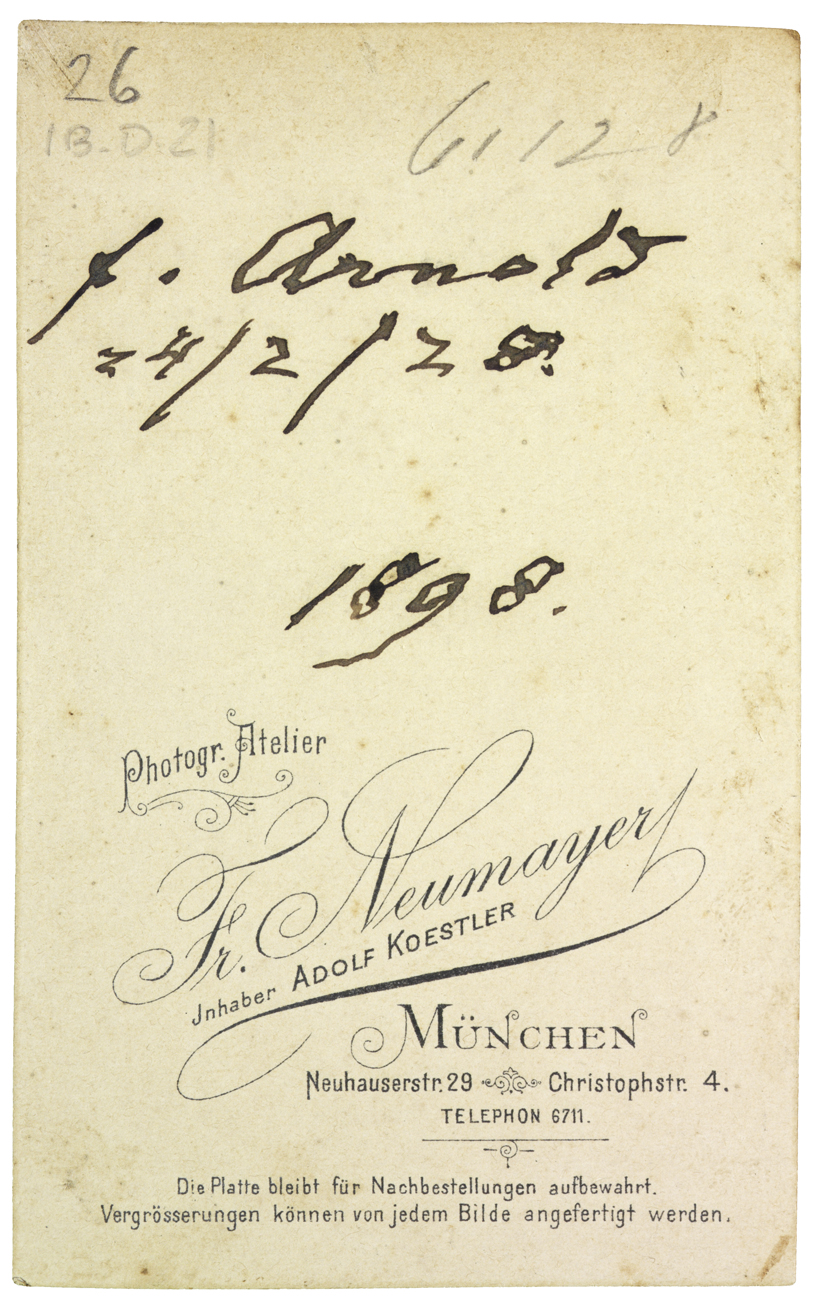 26
1B.D.21
6.12 8
f. Arnold
24/2/28.
1898.
Photogr. Atelier
Fr. Neumayer
Jnhaber ADOLF KOESTLER
MÜNCHEN
Neuhauserstr. 29 Christophstr. 4.
TELEPHON 6711.
Die Platte bleibt für Nachbestellungen aufbewahrt.
Vergrösserungen können von jedem Bilde angefertigt werden.